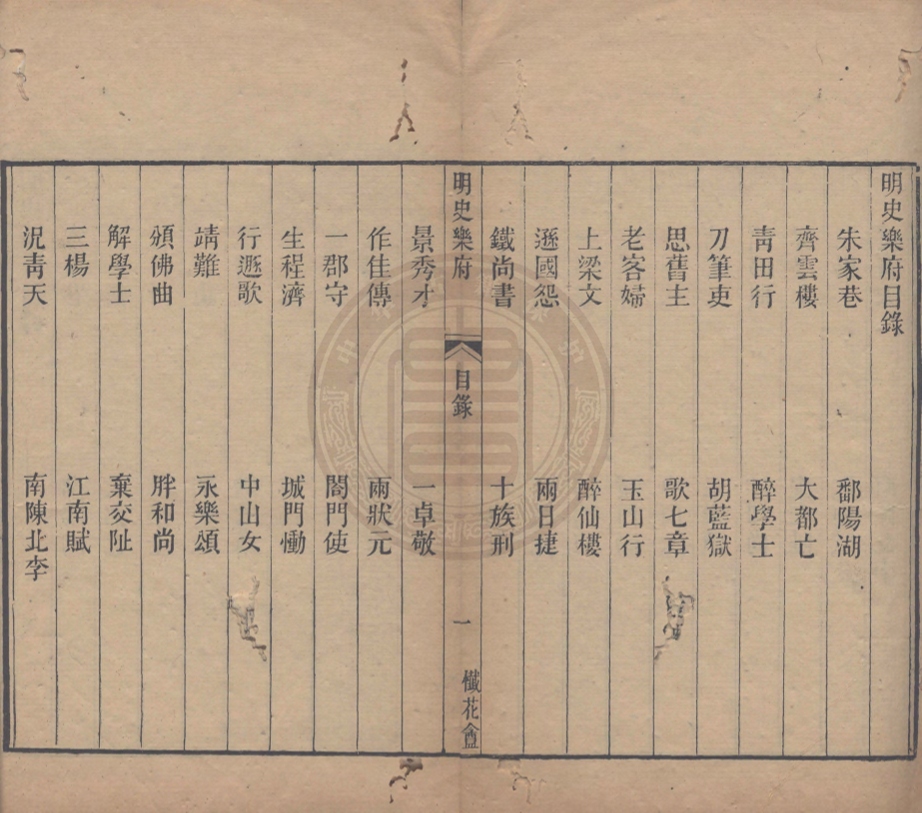 明史樂府目錄
朱家巷 鄱陽湖
齊雲樓 大都亡
靑田行 醉學士
刀筆吏 胡藍獄
思舊主 歌七章
老客婦 玉山行
上梁文 醉仙樓
遜國怨 兩日捷
鐵尚書 十族刑
明史樂府 目錄 一 懺花盦
景秀才 一卓敬
作佳傳 兩狀元
一郡守 閤門使
生程濟 城門慟
行遯歌 中山女
靖難 永樂頌
頒佛曲 胖和尚
解學士 棄交阯
三楊 江南賦
況靑天 南陳北李